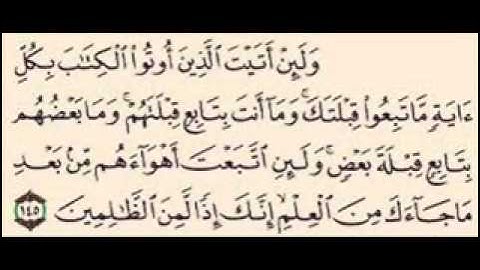 وَلَئِنْ أَتَيْتَ ٱلَّذِينَ أُوتُوا۟ ٱلْكِتَٰبَ بِكُلِّ
ءَايَةٍ مَّا تَبِعُوا۟ قِبْلَتَكَ ۚ وَمَآ أَنتَ بِتَابِعٍ قِبْلَتَهُمْ ۚ وَمَا بَعْضُهُم
بِتَابِعٍ قِبْلَةَ بَعْضٍ ۚ وَلَئِنِ ٱتَّبَعْتَ أَهْوَآءَهُم مِّنۢ بَعْدِ
مَا جَآءَكَ مِنَ ٱلْعِلْمِ ۙ إِنَّكَ إِذًا لَّمِنَ ٱلظَّٰلِمِينَ ١٤٥